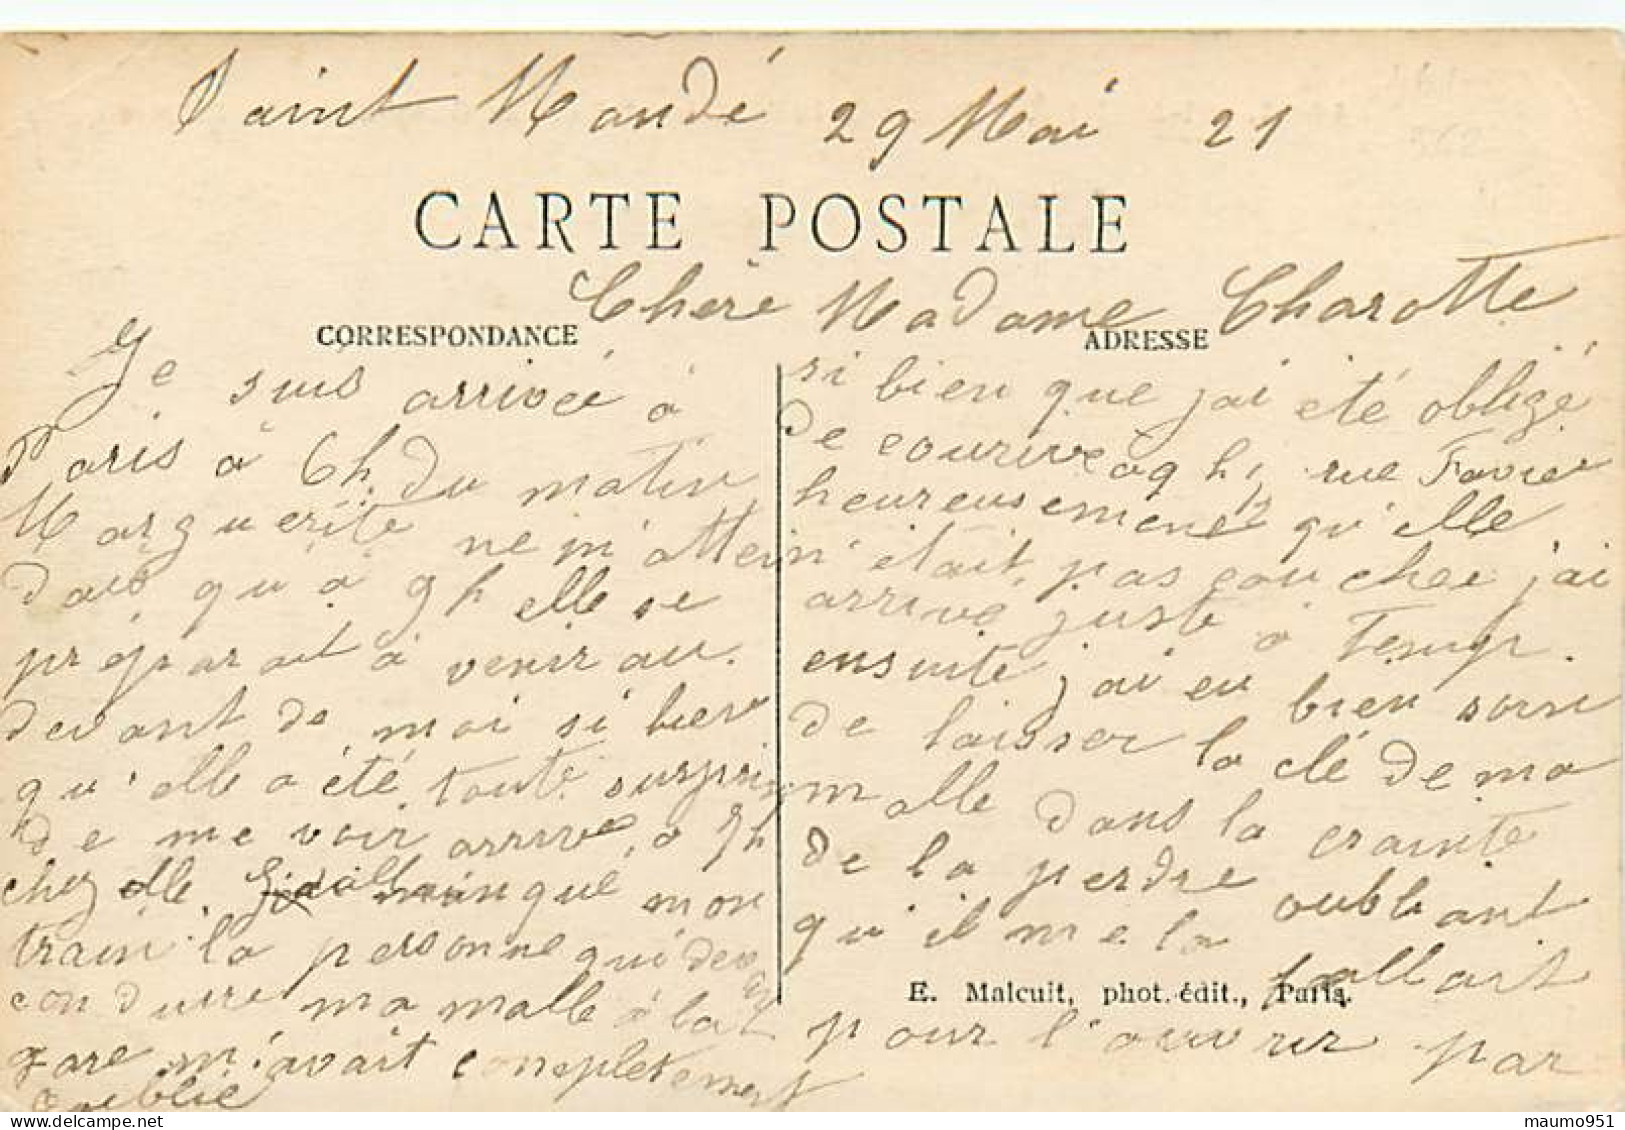 Saint Mandé 29 Mai 21
CARTE POSTALE
Chère Madame Charotte
CORRESPONDANCE
Je suis arrivée à
Paris à 6h du matin
Marguerite ne m'attein
dais qu'à 9h elle se
préparait à venir au
devant de moi si bien
qu'elle a été toute surprise
de me voir arrivé à 7h
chez elle manqué mon
train la personne qui devait
conduire ma malle à la
gare m'avait completement
oublié
ADRESSE
si bien que j'ai été obligé
de courire a 9h 1/2 rue Favie
heureusement qu'elle
n'était pas couchée j'ai
arrivé juste à temp.
ensuite j'ai eu bien soin
de laisser la clé de ma
malle dans la crainte
de la perdre oubliant
qu'il me la fallait
E. Malcuit, phot. édit., Paris.
pour l'ouvrir par
maumo951